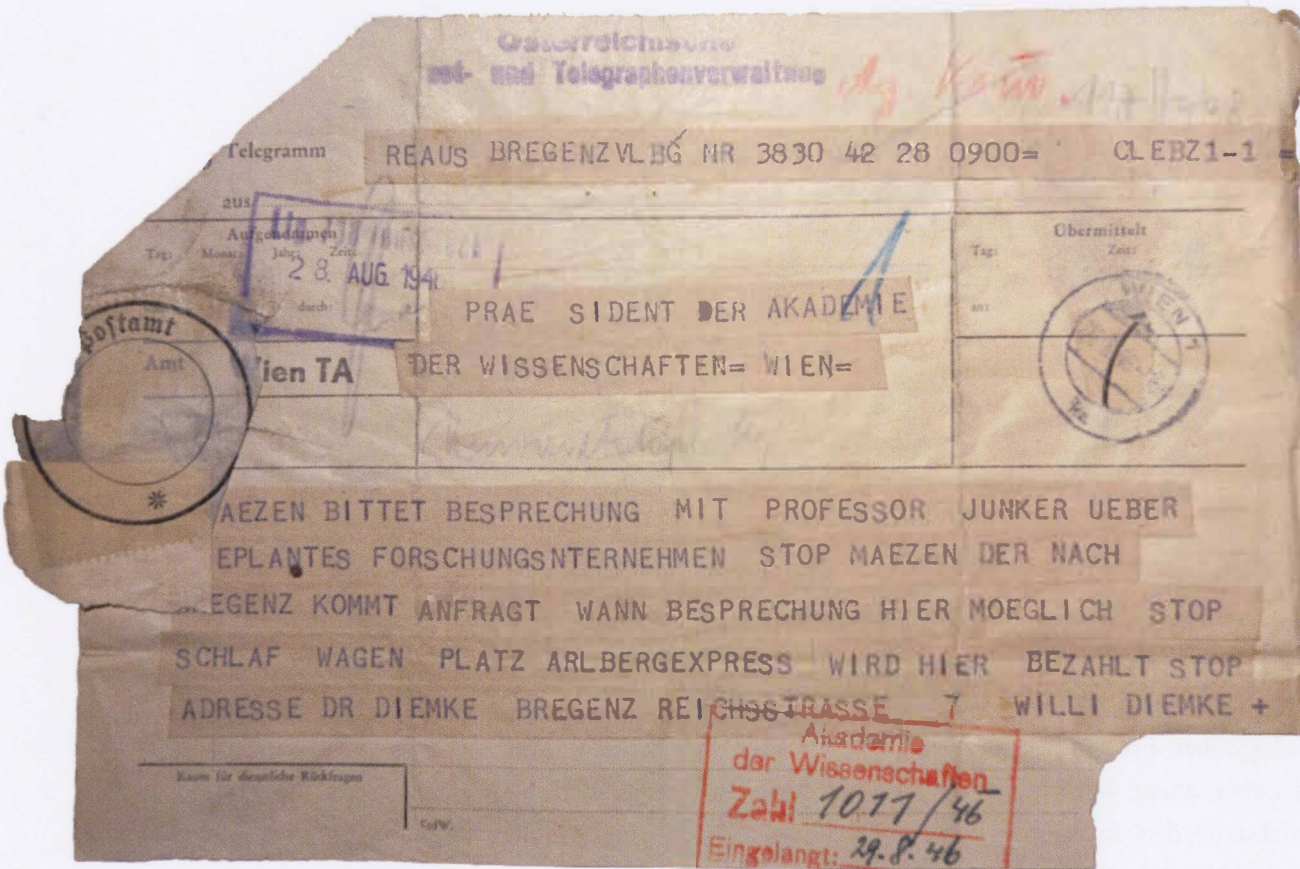 Österreichische
und Telegraphenverwaltung
Telegramm
REAUS BREGENZVLBG NR 3830 42 28 0900= CLEBZ1-1 =
aus
Aufgenommen
Tag: Monat: Jahr: Zeit:
28. AUG. 194
durch:
Übermittelt
Tag: Zeit:
an:
PRAE SIDENT DER AKADEMIE
DER WISSENSCHAFTEN= WIEN=
Postamt
Amt
ien TA
WIEN 1
1
AEZEN BITTET BESPRECHUNG MIT PROFESSOR JUNKER UEBER
EPLANTES FORSCHUNGSNTERNEHMEN STOP MAEZEN DER NACH
EGENZ KOMMT ANFRAGT WANN BESPRECHUNG HIER MOEGLICH STOP
SCHLAF WAGEN PLATZ ARLBERGEXPRESS WIRD HIER BEZAHLT STOP
ADRESSE DR DIEMKE BREGENZ REICHSSTRASSE 7 WILLI DIEMKE +
Raum für dienstliche Rückfragen
Akademie
der Wissenschaften
Zahl 1011/46
Eingelangt: 29.8.46